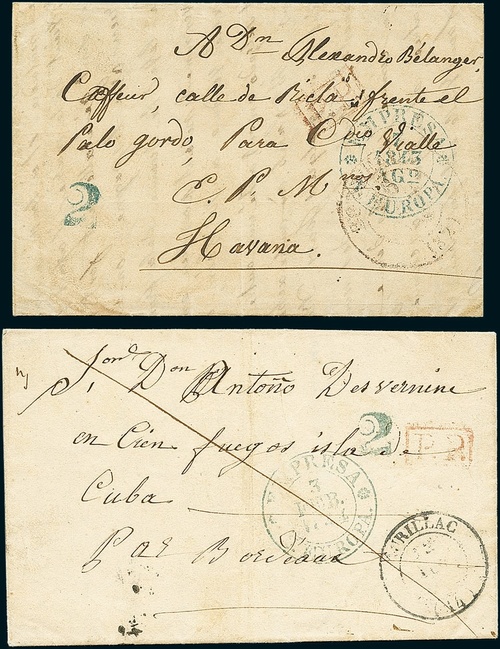 A Dn Alexandro Bélanger,
Coiffeur, calle de Ricla, frente el
Palo gordo, Para Vialle
E. P. M.nos
Havana.
2
EMPRESA
1843
AG
EUROPA.
Sor Don Antoño Desvernine
en Cien fuegos isla de
Cuba
Par Bordeaux
2
P.P.
EMPRESA
3
FEB.
EUROPA.
AURILLAC
(14)